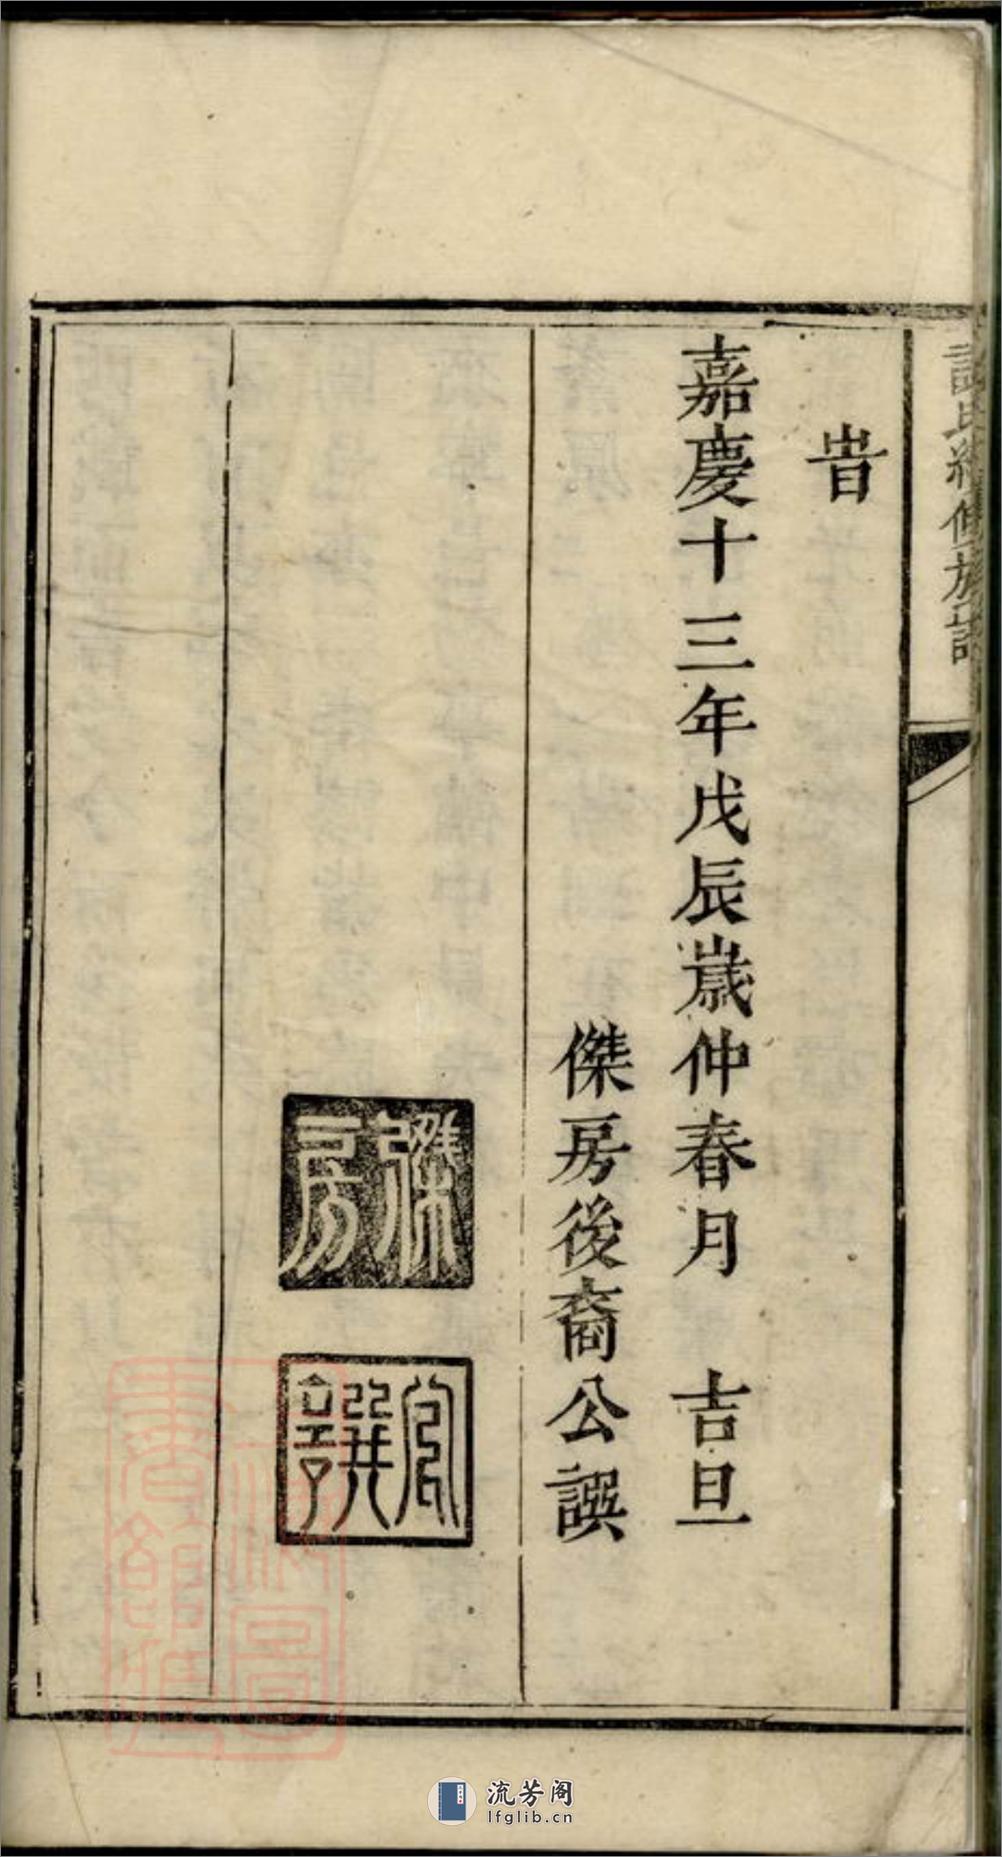 氏修族譜
旹
嘉慶十三年戊辰嵗仲春月　吉旦
傑房後裔公譔
傑房
譔
流芳阁
lfglib.cn